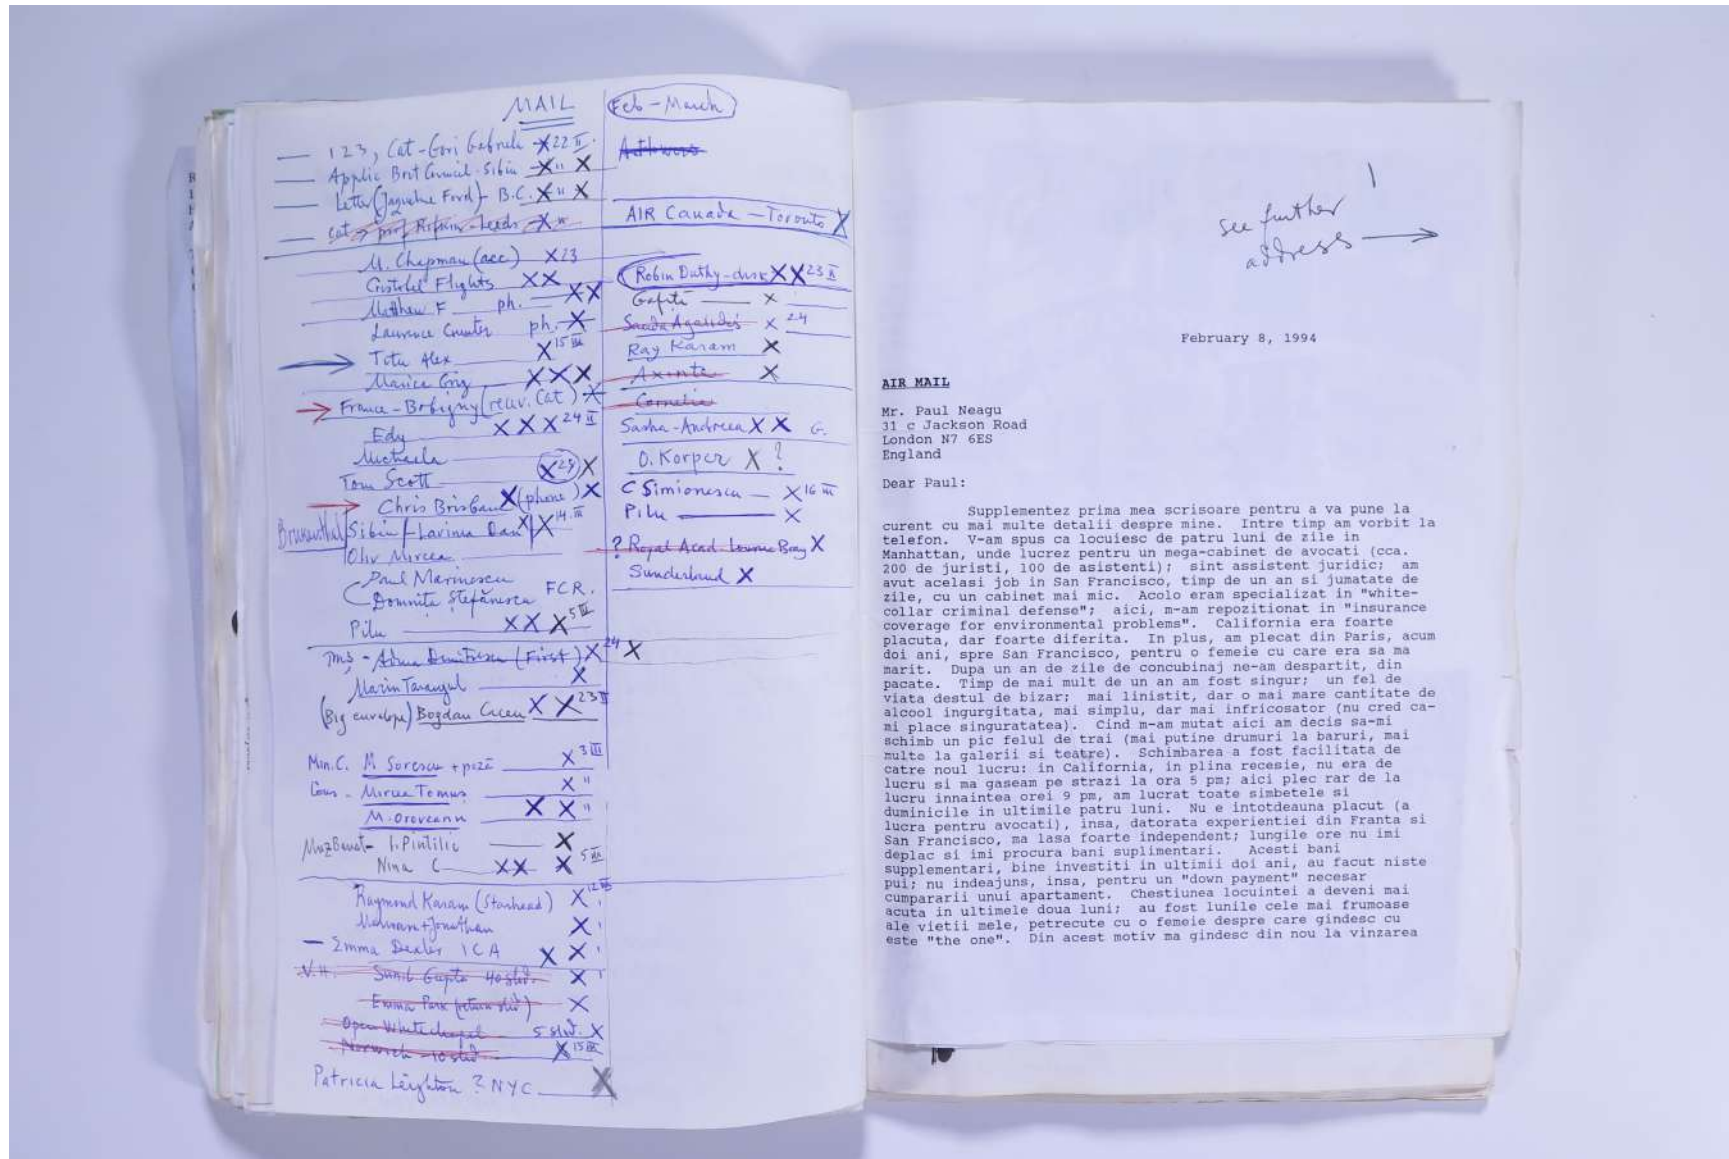 MAIL
1 2 3, Cat - Gori Gabriele X 22 II.
Applic Brit Council - Sibiu X " X
Letter (Jaqueline Ford) - B.C. X " X
Cat → prof - Leeds X "
M. Chapman (acc) X 23
Cristobel Flights X X
Matthew F ph. X X
Laurence ph. X
Titu Alex X 15 III
Marica Grig X X X
France - Bobigny (reuv. Cat) X
Edy X X X 24 II
Michaela
Tom Scott X 24 X
Chris Brisbane X (phone) X
Brukenthal Sibiu - Lavinia Dan X X 14. III
Oliv Mircea
Paul Marinescu
Domnita Ștefănescu FCR.
Pilu X X X 5 III
- Adina Dumitrescu (First) X 24 X
Marin Tarangul X
(Big envelope) Bogdan X X 23 II
Min.C. M Sorescu + poză X 3 III
Cons - Mircea Tomuș X "
M. Oroveanu X X "
Muz Banat - I. Pintilie X
Nina C X X X 5 III
Raymond Karam (Stanhead) X 12 III
+ Jonathan X '
- Emma Dexter ICA X X '
V.H. Sunil Gupta 40 slid. X '
Emma Park (return slid) X
Open Whitechapel 5 slid. X
Norwich - 10 slid X 15 III
Patricia Leighton ? NYC X
Feb - March
AIR Canada - Toronto X
Robin Duthy - disk X X 23 II
Gafita X
Sanda Agalidis X 24
Ray Karam X
Axinte X
Cornelia
Sasha - Andreea X X G.
O. Korper X ?
C Simionescu - X 16 III
Pilu X
? Royal Acad Bray X
Sunderland X
1
see further
address →
February 8, 1994
AIR MAIL
Mr. Paul Neagu
31 c Jackson Road
London N7 6ES
England
Dear Paul:
Supplementez prima mea scrisoare pentru a va pune la
curent cu mai multe detalii despre mine. Intre timp am vorbit la
telefon. V-am spus ca locuiesc de patru luni de zile in
Manhattan, unde lucrez pentru un mega-cabinet de avocati (cca.
200 de juristi, 100 de asistenti); sint assistent juridic; am
avut acelasi job in San Francisco, timp de un an si jumatate de
zile, cu un cabinet mai mic. Acolo eram specializat in "white-
collar criminal defense"; aici, m-am repozitionat in "insurance
coverage for environmental problems". California era foarte
placuta, dar foarte diferita. In plus, am plecat din Paris, acum
doi ani, spre San Francisco, pentru o femeie cu care era sa ma
marit. Dupa un an de zile de concubinaj ne-am despartit, din
pacate. Timp de mai mult de un an am fost singur; un fel de
viata destul de bizar; mai linistit, dar o mai mare cantitate de
alcool ingurgitata, mai simplu, dar mai infricosator (nu cred ca-
mi place singuratatea). Cind m-am mutat aici am decis sa-mi
schimb un pic felul de trai (mai putine drumuri la baruri, mai
multe la galerii si teatre). Schimbarea a fost facilitata de
catre noul lucru: in California, in plina recesie, nu era de
lucru si ma gaseam pe strazi la ora 5 pm; aici plec rar de la
lucru innaintea orei 9 pm, am lucrat toate simbetele si
duminicile in ultimile patru luni. Nu e intotdeauna placut (a
lucra pentru avocati), insa, datorata experientiei din Franta si
San Francisco, ma lasa foarte independent; lungile ore nu imi
deplac si imi procura bani suplimentari. Acesti bani
supplementari, bine investiti in ultimii doi ani, au facut niste
pui; nu indeajuns, insa, pentru un "down payment" necesar
cumpararii unui apartament. Chestiunea locuintei a deveni mai
acuta in ultimele doua luni; au fost lunile cele mai frumoase
ale vietii mele, petrecute cu o femeie despre care gindesc cu
este "the one". Din acest motiv ma gindesc din nou la vinzarea